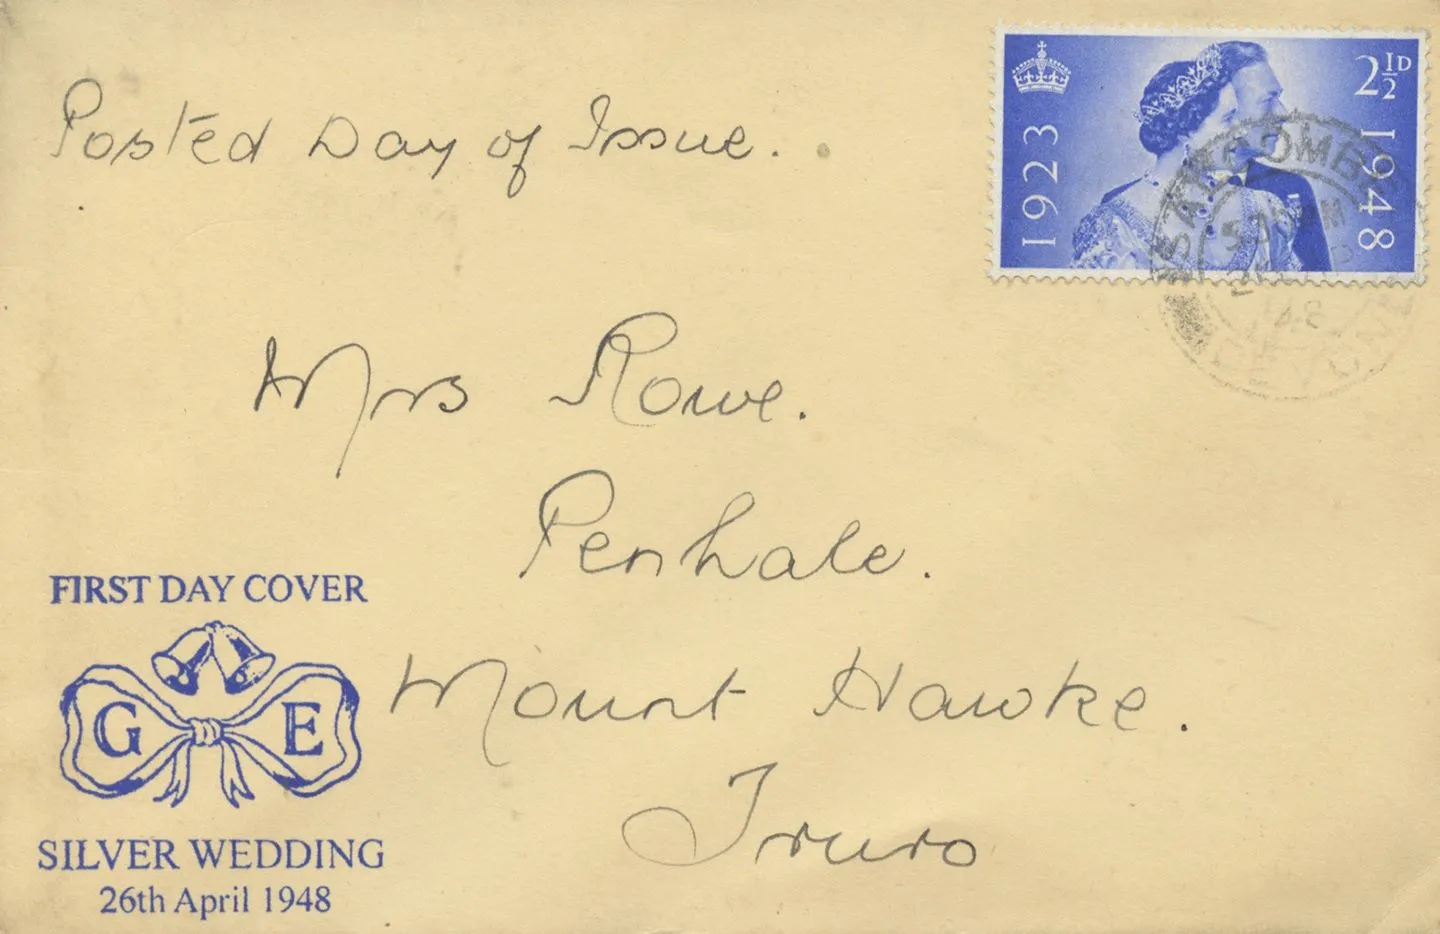 Posted Day of Issue.
1923
2½D
1948
Mrs Rowe.
Penhale.
Mount Hawke.
Truro
FIRST DAY COVER
G E
SILVER WEDDING
26th April 1948